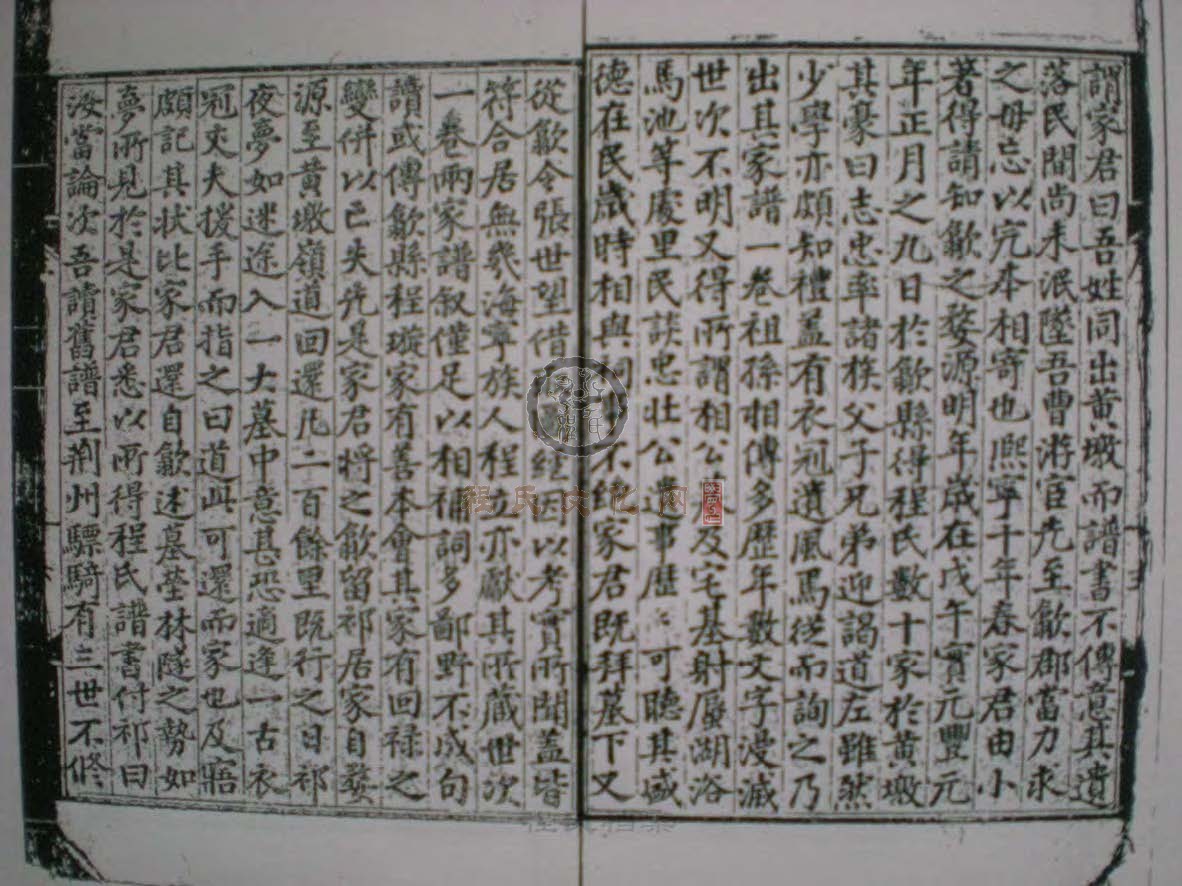 謂家君曰吾姓同出黃墩而譜書不傳意其遺
落民間尚未泯墜吾曹游官先至歙郡當力求
之毋忘以完本相寄也熙寧十年春家君由小
著得請知歙之婺源明年歲在戊午實元豐元
年正月之九日於歙縣得程氏數十家於黃墩
其豪曰志忠率諸族父子兄弟迎謁道左雖然
少學亦頗知禮蓋有衣冠遺風焉從而詢之乃
出其家譜一卷祖孫相傳多歷年數文字漫滅
世次不明又得所謂相公 及宅基射蜃湖浴
馬池等處里民談忠壯公遺事歷﹦可聽其盛
德在民歲時相與 不 家君既拜墓下又
從歙令張世望借 經因以考實所聞蓋皆
符合居無幾海寧族人程立亦獻其所藏世次
一卷兩家譜叙僅足以相補詞多鄙野不成句
讀或傳歙縣程璇家有善本會其家有回祿之
變併以亡失先是家君將之歙留祁居家自婺
源至黃墩嶺道回還凡二百餘里既行之日祁
夜夢如迷途入一大墓中意甚恐適逢一古衣
冠丈夫援手而指之曰道此可還而家也及寤
頗記其狀比家君還自歙述墓塋林隧之勢如
夢所見於是家君悉以所得程氏譜書付祁曰
汝當論次吾讀舊譜至荊州驃騎有三世不修
程氏文化网